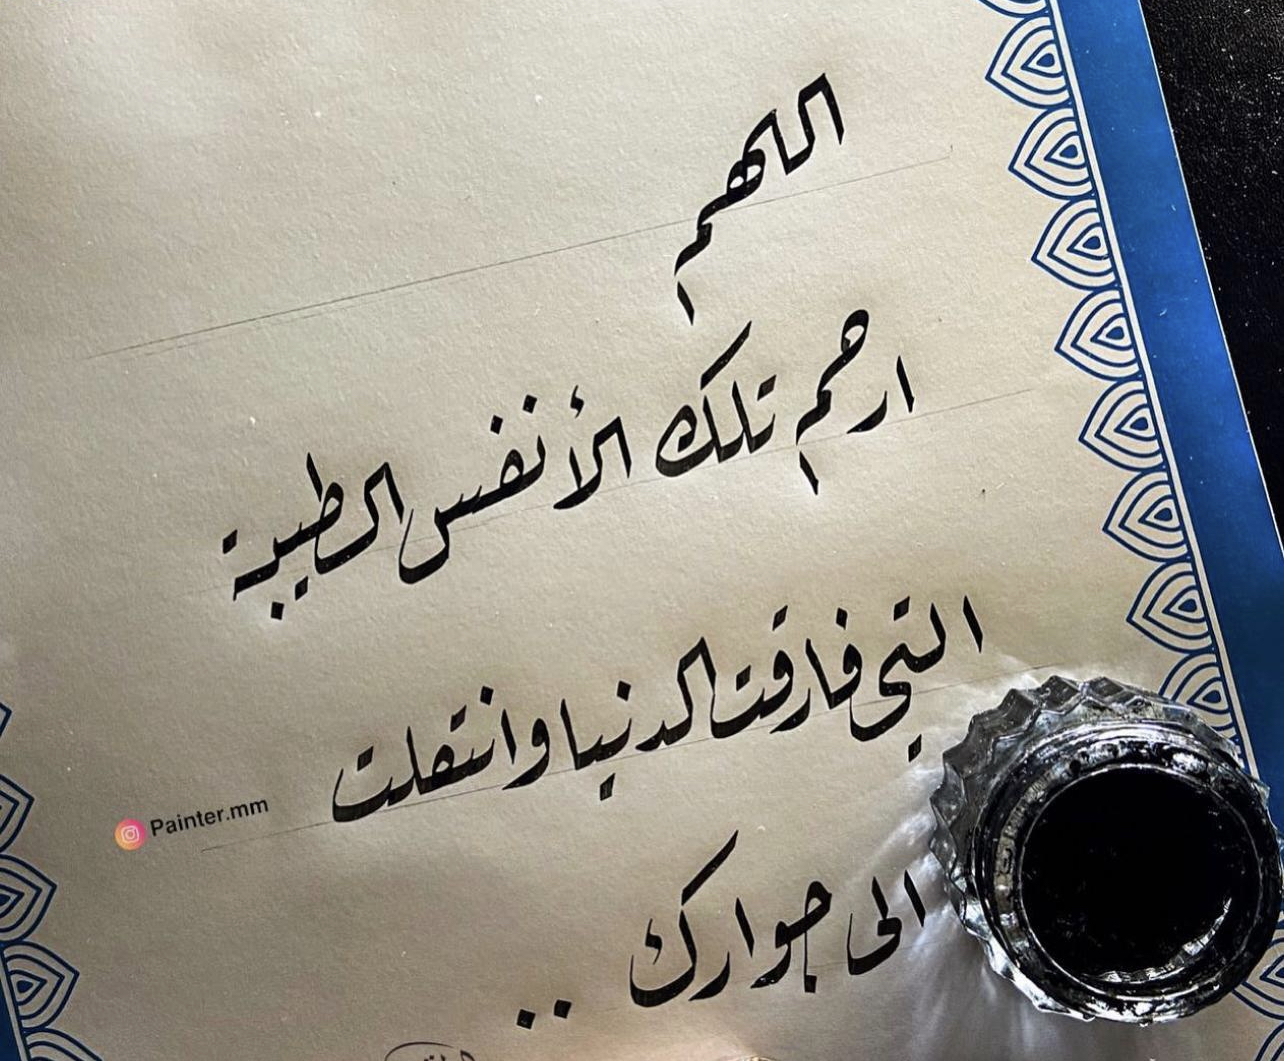 اللهم
ارحم تلك الأنفس الطيبة
التي فارقت الدنيا وانتقلت
الى جوارك ..
Painter.mm